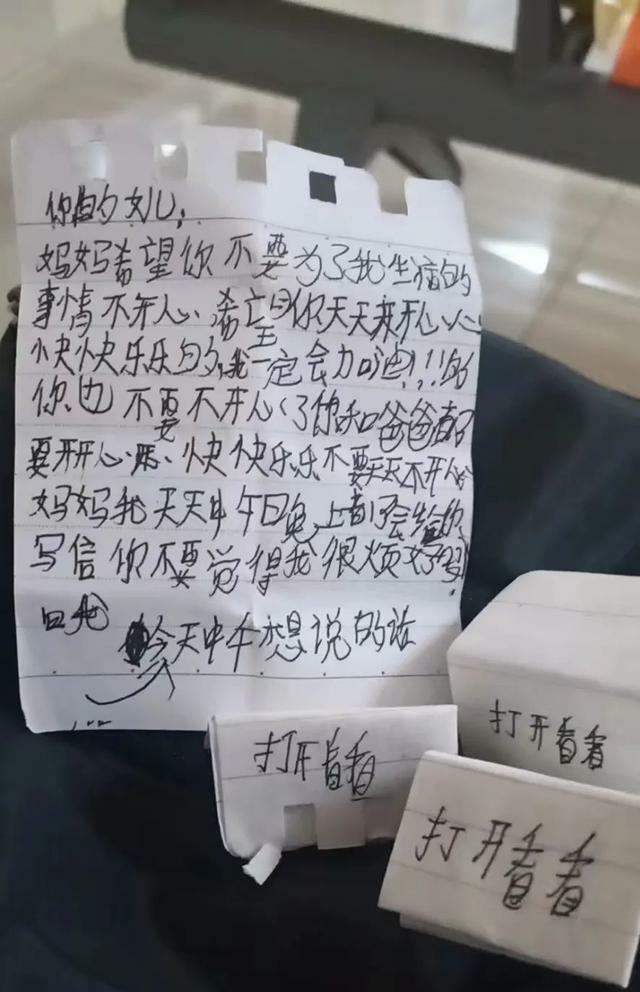 你的女儿,
妈妈希望你不要为了我生病的
事情不开心、希望你天天来开心心
快快乐乐的,我一定会加油!!!的
你也不要不开心了你和爸爸都
要开开心心、快快乐乐不要天天不开心
妈妈我天天中午日晚上都会给你
写信你不要觉得我很烦好
今天中午想说的话
打开看看
打开看看
打开看看